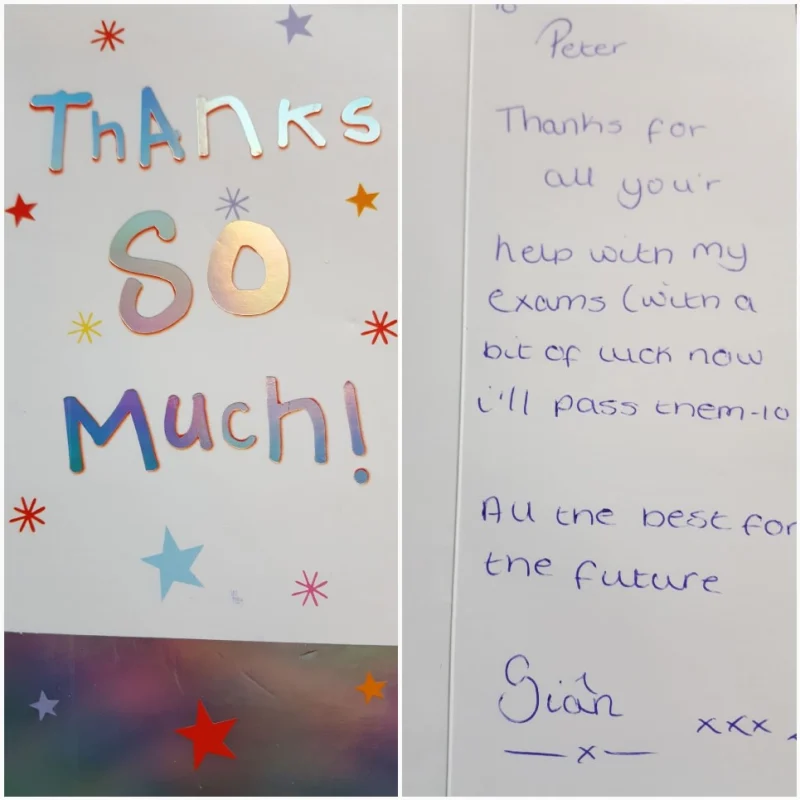 ThAnks
SO
Much!
Peter
Thanks for
all you'r
help with my
exams (with a
bit of luck now
i'll pass them-lo
All the best for
the future
Siân
xxx
x